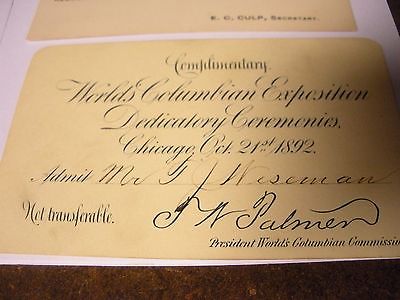 E. C. CULP, SECRETARY.
Complimentary.
World's Columbian Exposition
Dedicatory Ceremonies,
Chicago, Oct. 21st 1892.
Admit Mr F J Wiseman
Not transferable.
T W Palmer
President World's Columbian Commission